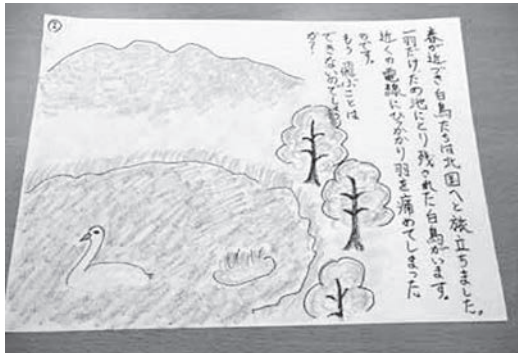 ②
春が近づき白鳥たちは北国へと旅立ちました。
一羽だけため池にとり残された白鳥がいます。
近くの電線にひっかかり羽を痛めてしまった
のです。
もう飛ぶことは
できないのでしょう
か?